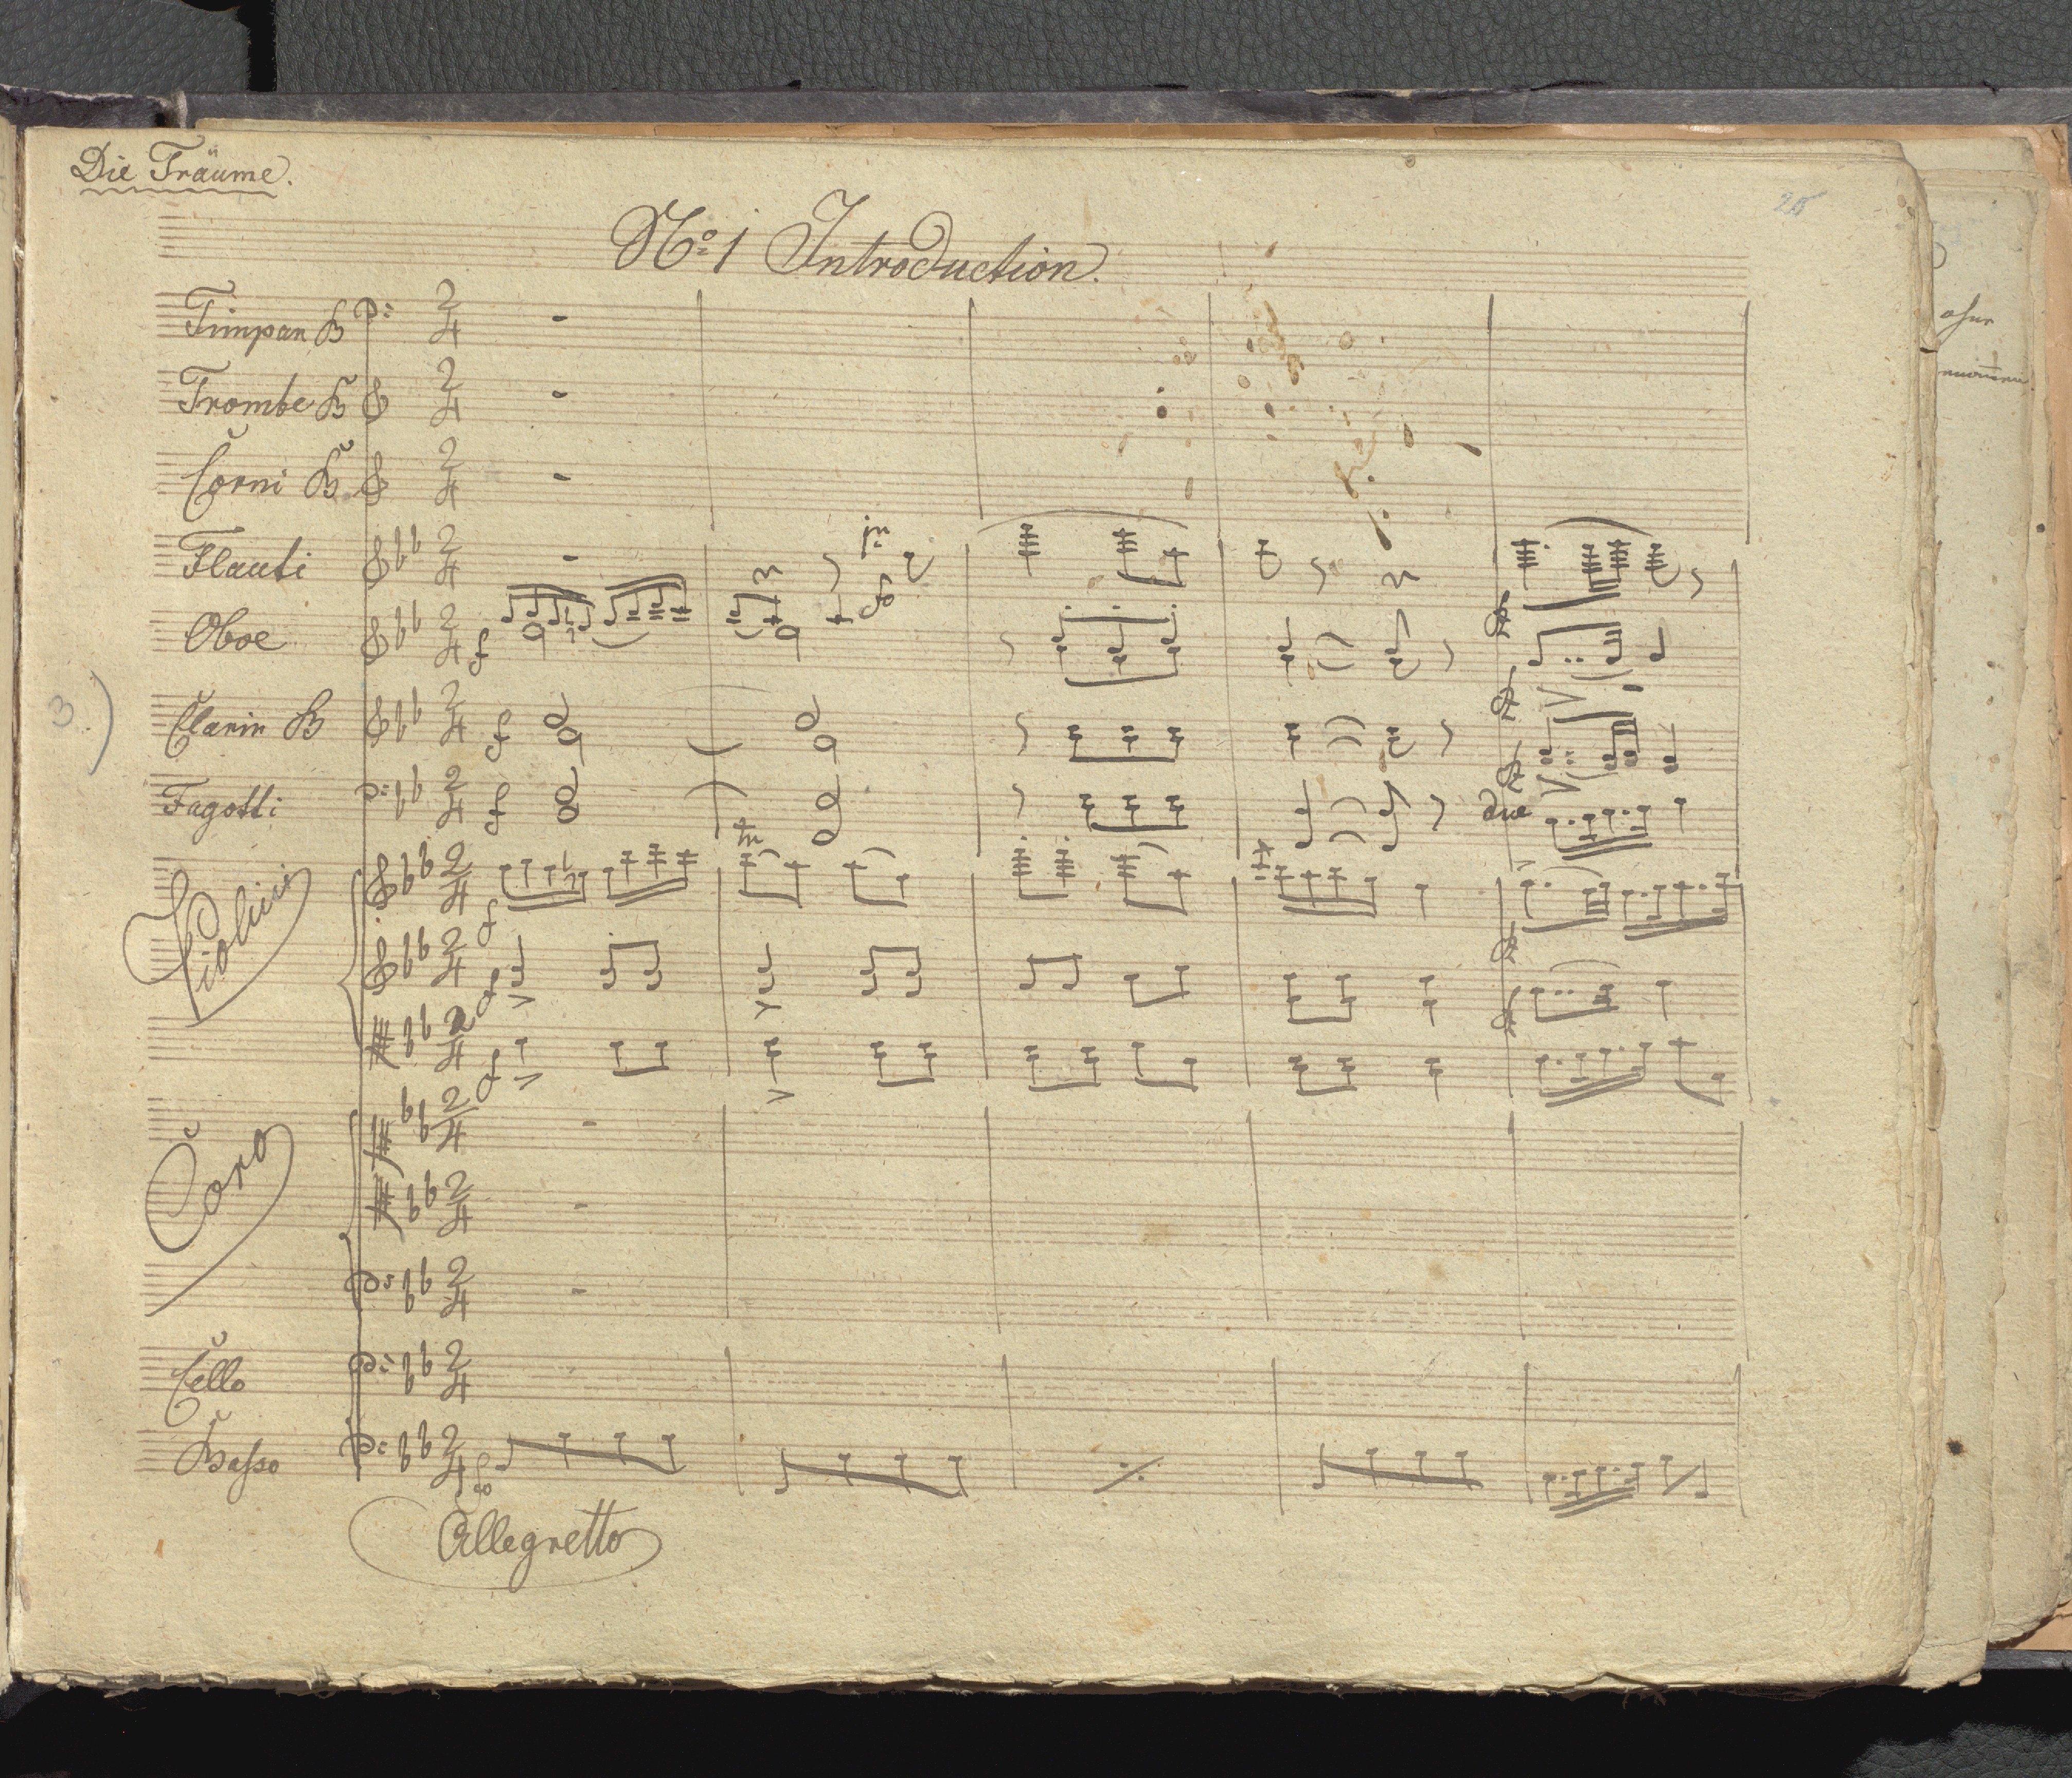 Die Träume.
25
No 1 Introduction.
Timpan B
Trombe B
Corni B
Flauti
Oboe
Clarin B
3.)
Fagotti
due
Violini
Coro
Cello
Basso
Allegretto